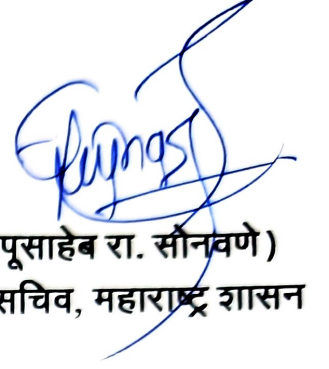 पूसाहेब रा. सोनवणे)
सचिव, महाराष्ट्र शासन